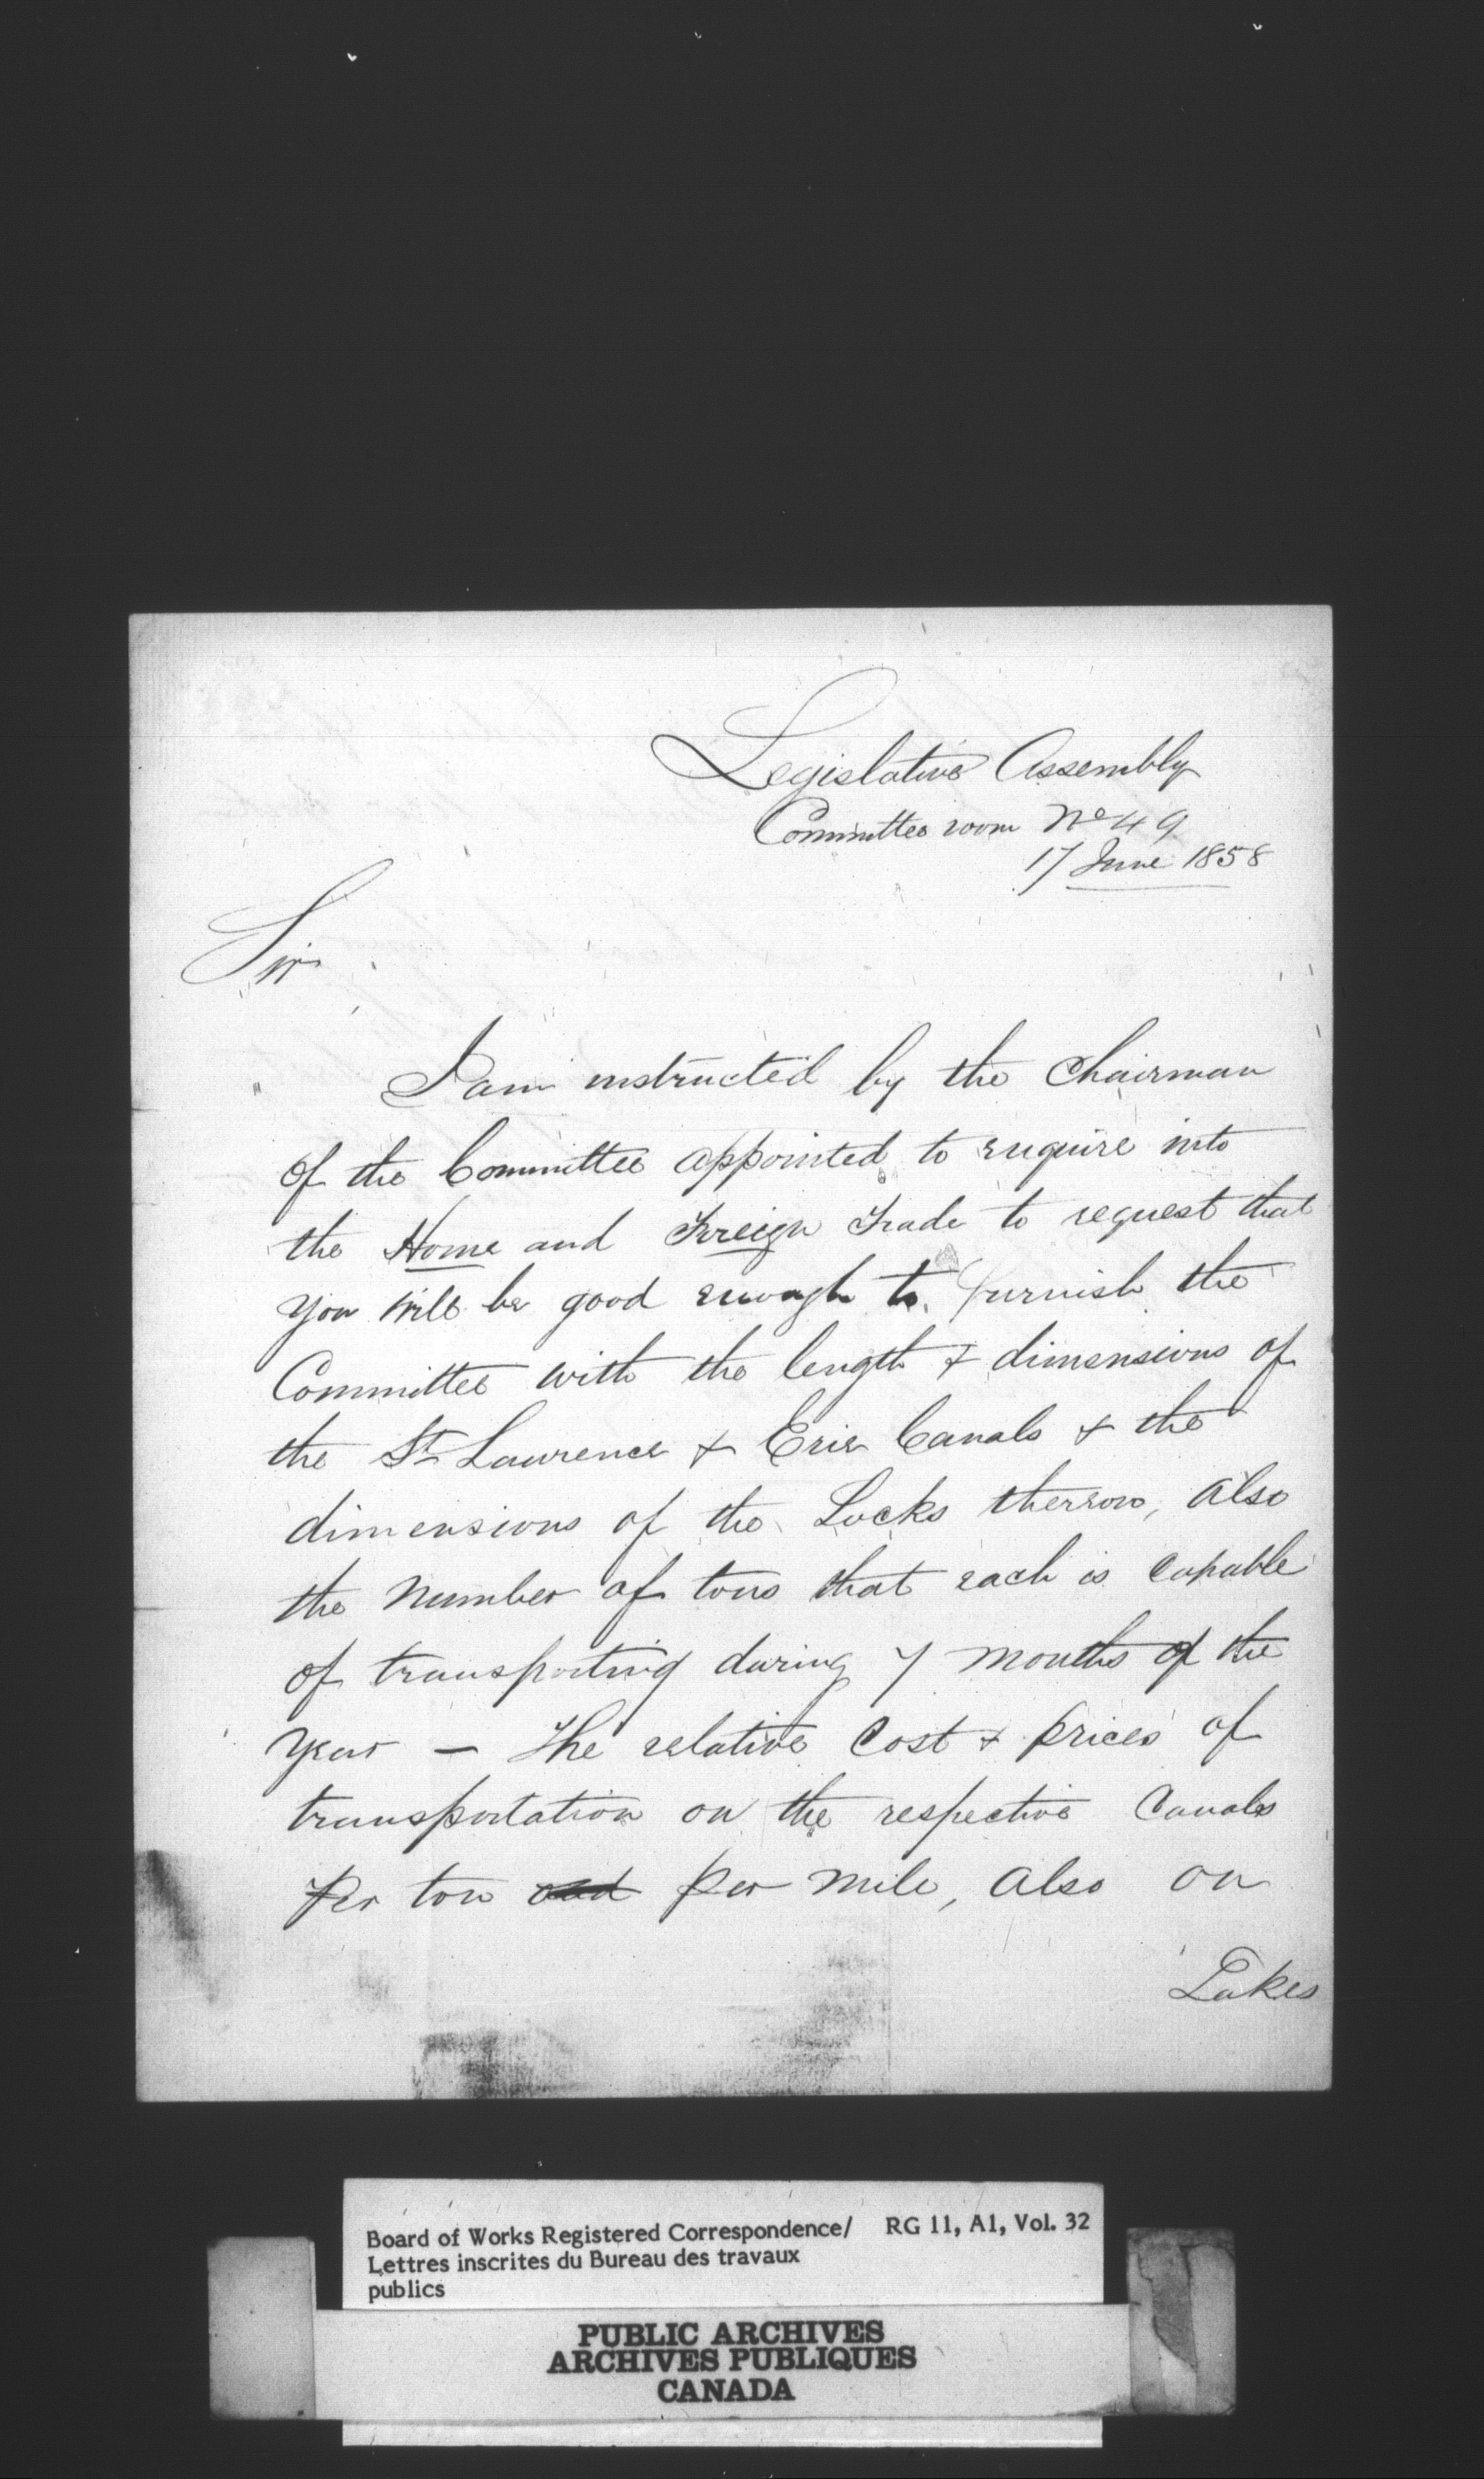 Legislative Assembly
Committee room No 49
17 June 1858
Sir
I am instructed by the Chairman
of the Committee appointed to enquire into
the Home and Foreign Trade to request that
you will be good enough to furnish the
Committee with the length & dimensions of
the St Lawrence & Erie Canals & the
dimensions of the Locks thereon, also
the number of tons that each is capable
of transporting during 7 months of the
year — The relative cost & prices of
transportation on the respective Canals
Per ton and per mile, also on
Lakes
Board of Works Registered Correspondence/ RG 11, A1, Vol. 32
Lettres inscrites du Bureau des travaux
publics
PUBLIC ARCHIVES
ARCHIVES PUBLIQUES
CANADA